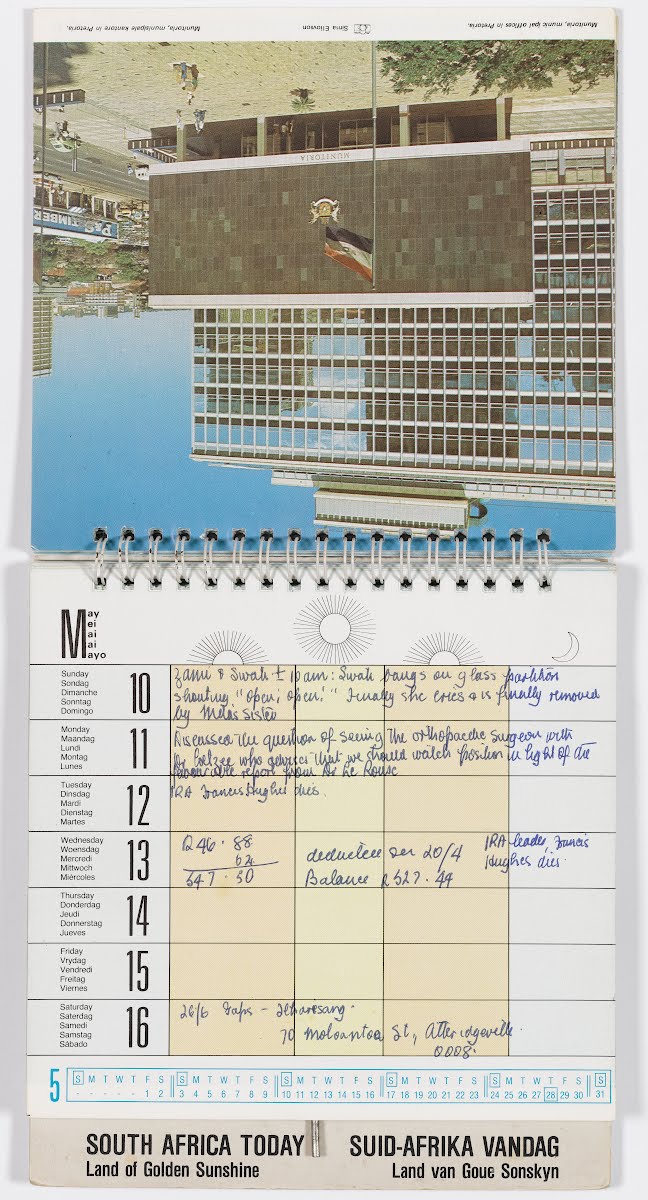 Munitoria, municipal offices in Pretoria.
Sima Eliovson
Munitoria, munisipale kantore in Pretoria.
MUNITORIA
TIMBER
May
Mei
Mai
Mai
Mayo
Sunday
Sondag
Dimanche
Sonntag
Domingo
10
Zami & Swati ± 10 am: Swati bangs on glass partition
shouting "open, open!" Finally she cries & is finally removed
by sister
Monday
Maandag
Lundi
Montag
Lunes
11
Discussed the question of seeing the orthopaedic surgeon with
Dr who advises that we should watch position in light of the
favourable report from Dr Le Roux
Tuesday
Dinsdag
Mardi
Dienstag
Martes
12
IRA Francis Hughes dies.
Wednesday
Woensdag
Mercredi
Mittwoch
Miércoles
13
R46.88
62
547.50
deducted 20/4
Balance R527.44
IRA leader, Francis
Hughes dies.
Thursday
Donderdag
Jeudi
Donnerstag
Jueves
14
Friday
Vrydag
Vendredi
Freitag
Viernes
15
Saturday
Saterdag
Samedi
Samstag
Sábado
16
26/6
70 Moloantoa St., Atteridgeville.
0008.
5
S M T W T F S S M T W T F S S M T W T F S S M T W T F S S M T W T F S S
- - - - - 1 2 3 4 5 6 7 8 9 10 11 12 13 14 15 16 17 18 19 20 21 22 23 24 25 26 27 28 29 30 31
SOUTH AFRICA TODAY
Land of Golden Sunshine
SUID-AFRIKA VANDAG
Land van Goue Sonskyn